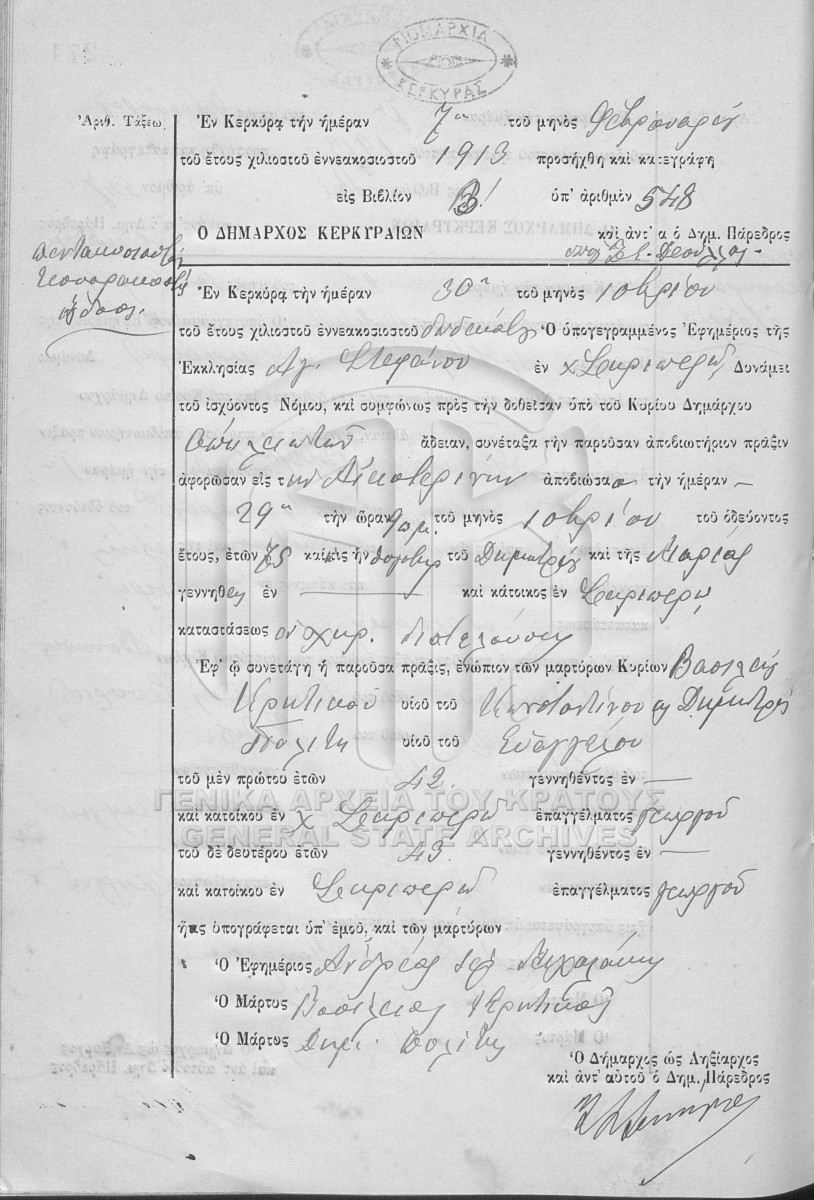 ΝΟΜΑΡΧΙΑ
ΚΕΡΚΥΡΑΣ
Ἀριθ. Τάξεω.
Ἐν Κερκύρᾳ τὴν ἡμέραν 7ην τοῦ μηνὸς Φεβρουαρίου
τοῦ ἔτους χιλιοστοῦ ἐννεακοσιοστοῦ 1913 προσήχθη καὶ κατεγράφη
εἰς Βιβλίον Β! ὑπ' ἀριθμὸν 548
Ὁ ΔΗΜΑΡΧΟΣ ΚΕΡΚΥΡΑΙΩΝ καὶ ἀντ' α ὁ Δημ. Πάρεδρος
πεντακοσιοστὴ
τεσσαρακοστὴ
Ἐν Κερκύρᾳ τὴν ἡμέραν 30η τοῦ μηνὸς 10βρίου
τοῦ ἔτους χιλιοστοῦ ἐννεακοσιοστοῦ δωδεκάτου Ὁ ὑπογεγραμμένος Ἐφημέριος τῆς
Ἐκκλησίας Ἁγ. Στεφάνου ἐν χ Σκριπερῷ, Δυνάμει
τοῦ ἰσχύοντος Νόμου, καὶ συμφώνως πρὸς τὴν δοθεῖσαν ὑπὸ τοῦ Κυρίου Δημάρχου
ἄδειαν, συνέταξα τὴν παροῦσαν ἀποβιωτήριον πρᾶξιν
ἀφορῶσαν εἰς τὴν Αἰκατερίνην ἀποβιώσασα τὴν ἡμέραν —
29η τὴν ὥραν 9 π.μ. τοῦ μηνὸς 10βρίου τοῦ ὁδεύοντος
ἔτους, ἐτῶν 75 καὶ ἦν θυγάτηρ τοῦ Δημητρίου καὶ τῆς Μαρίας
γεννηθεῖσα ἐν — καὶ κάτοικος ἐν Σκριπερῷ,
καταστάσεως ἐν χηρ. διατελούσης
Ἐφ' ᾧ συνετάγη ἡ παροῦσα πρᾶξις, ἐνώπιον τῶν μαρτύρων Κυρίων Βασιλείου
Κρητικοῦ υἱοῦ τοῦ Κωνσταντίνου κ Δημητρίου
Πολίτη υἱοῦ τοῦ Εὐαγγέλου
τοῦ μὲν πρώτου ἐτῶν 42 γεννηθέντος ἐν —
καὶ κατοίκου ἐν χ Σκριπερῷ ἐπαγγέλματος γεωργοῦ
ΓΕΝΙΚΑ ΑΡΧΕΙΑ ΤΟΥ ΚΡΑΤΟΥΣ
GENERAL STATE ARCHIVES
τοῦ δὲ δευτέρου ἐτῶν 43 γεννηθέντος ἐν —
καὶ κατοίκου ἐν Σκριπερῷ ἐπαγγέλματος γεωργοῦ
ἥτις ὑπογράφεται ὑπ' ἐμοῦ, καὶ τῶν μαρτύρων
Ὁ Ἐφημέριος Ἀνδρέας Ἱερ Μιχαλάκης
Ὁ Μάρτυς Βασίλειος Κρητικὸς
Ὁ Μάρτυς Δημ. Πολίτης
Ὁ Δήμαρχος ὡς Ληξίαρχος
καὶ ἀντ' αὐτοῦ ὁ Δημ. Πάρεδρος